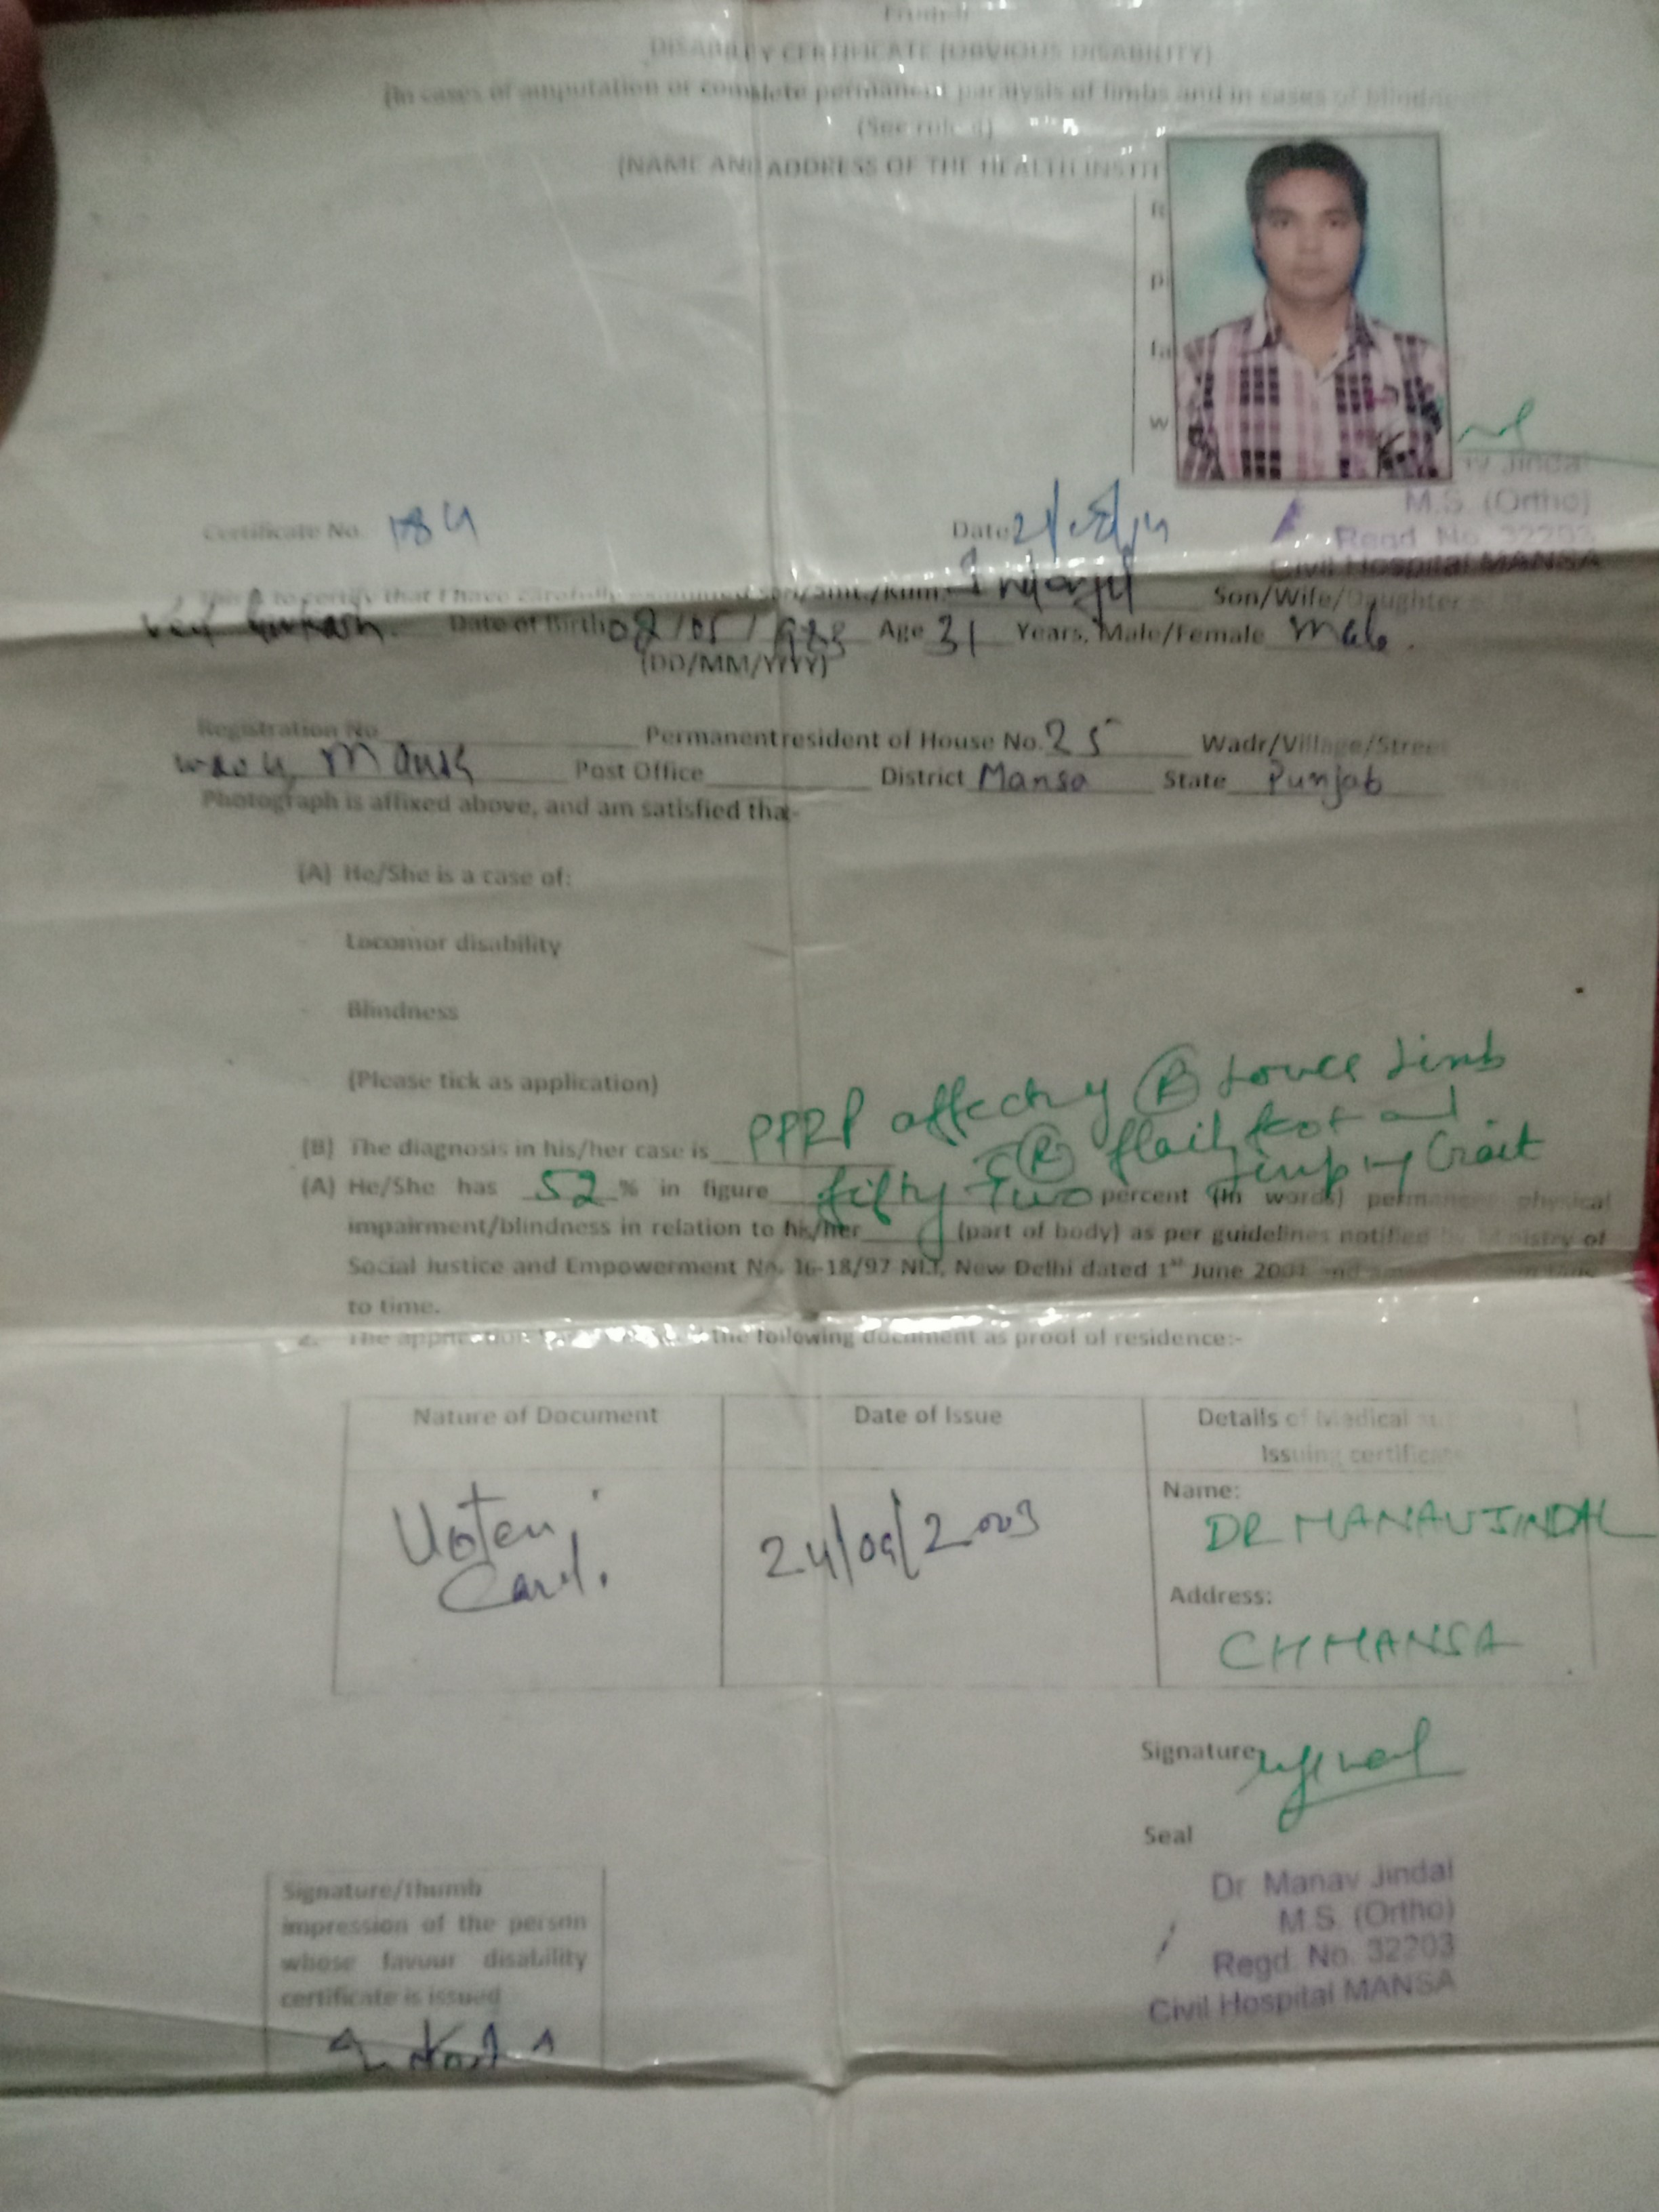 DISABILITY CERTIFICATE (OBVIOUS DISABILITY)
(In cases of amputation or complete permanent paralysis of limbs and in cases of blindness
(NAME AND ADDRESS OF THE HEALTH INSTIT
Jindal
M.S. (Ortho)
Regd. No. 32203
Civil Hospital MANSA
Certificate No. 184
Date
This is to certify that I have carefully examined Shri/Smt./Kum. Son/Wife/Daughter
Date of Birth 08/05/1983 Age 31 Years, Male/Female Male.
(DD/MM/YYYY)
Registration No Permanent resident of House No. 25 Wadr/Village/Street
Mansa Post Office District Mansa State Punjab
Photograph is affixed above, and am satisfied that-
(A) He/She is a case of:
Locomor disability
Blindness
(Please tick as application)
(B) The diagnosis in his/her case is PPRP affecting (R) Lower Limb
(R) flail foot and
limping Gait
(A) He/She has 52 % in figure fifty Two percent (in words) permanent physical
impairment/blindness in relation to his/her (part of body) as per guidelines notified by Ministry of
Social Justice and Empowerment No. 16-18/97 NI.I, New Delhi dated 1st June 2001 and
to time.
2. The following document as proof of residence:-
Nature of Document Date of Issue Details of Medical
Issuing certificate
Voter Card. 24/09/2003
Name:
DR MANAV JINDAL
Address:
CH MANSA
Signature
Seal
Dr Manav Jindal
M.S. (Ortho)
Regd. No. 32203
Civil Hospital MANSA
Signature/thumb
impression of the person
whose favour disability
certificate is issued